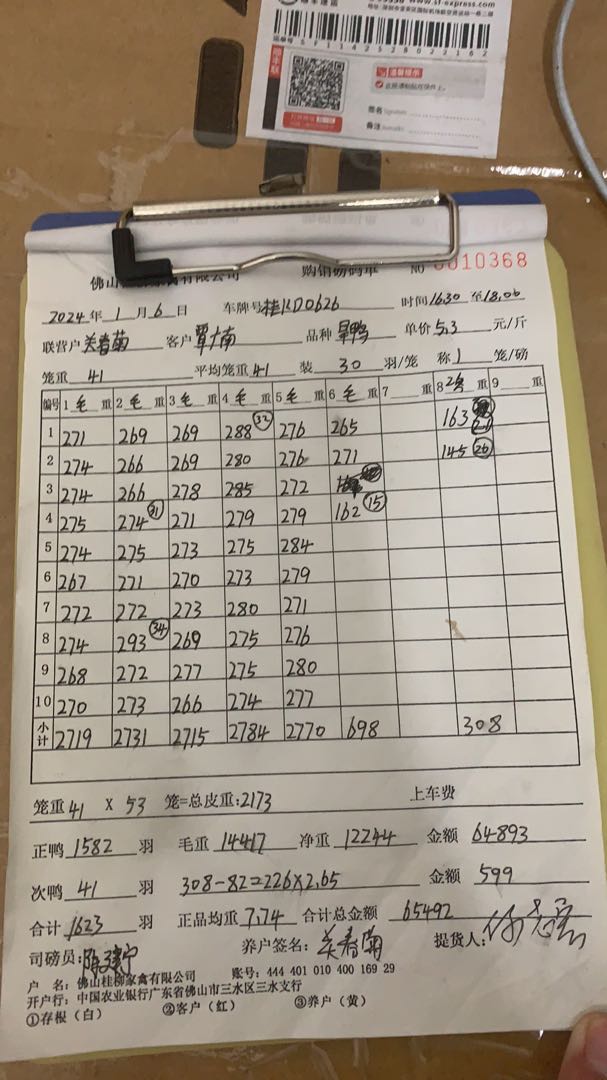 sf-express.com
SF1142580022162
温馨提示
签名
备注
佛山
有限公司
购销磅码单 NO 0010368
2024年1月6日 车牌号桂KD0626 时间1630至18.00
联营户 关春菊 客户 覃大南 品种 旱鸭 单价5.3元/斤
笼重 41 平均笼重 41 装 30 羽/笼 称 1 笼/磅
编号 1毛重 2毛重 3毛重 4毛重 5毛重 6毛重 7重 8 重 9重
1 271 269 269 288 32 276 265 163
2 274 266 269 280 276 271 145 26
3 274 266 278 285 272
4 275 274 31 271 279 279 162 15
5 274 275 273 275 284
6 267 271 270 273 279
7 272 272 273 280 271
8 274 293 34 269 275 276
9 268 272 277 275 280
10 270 273 266 274 277
小计 2719 2731 2715 2784 2770 698 308
笼重 41 X 53 笼=总皮重:2173 上车费
正鸭 1582 羽 毛重 14417 净重 12244 金额 64893
次鸭 41 羽 308-82=226×2.65 金额 599
合计 1623 羽 正品均重 7.74 合计总金额 65492
司磅员: 养户签名: 关春菊 提货人:
户 名: 佛山桂柳家禽有限公司 账号: 444 401 010 400 169 29
开户行: 中国农业银行广东省佛山市三水区三水支行
①存根(白) ②客户(红) ③养户(黄)